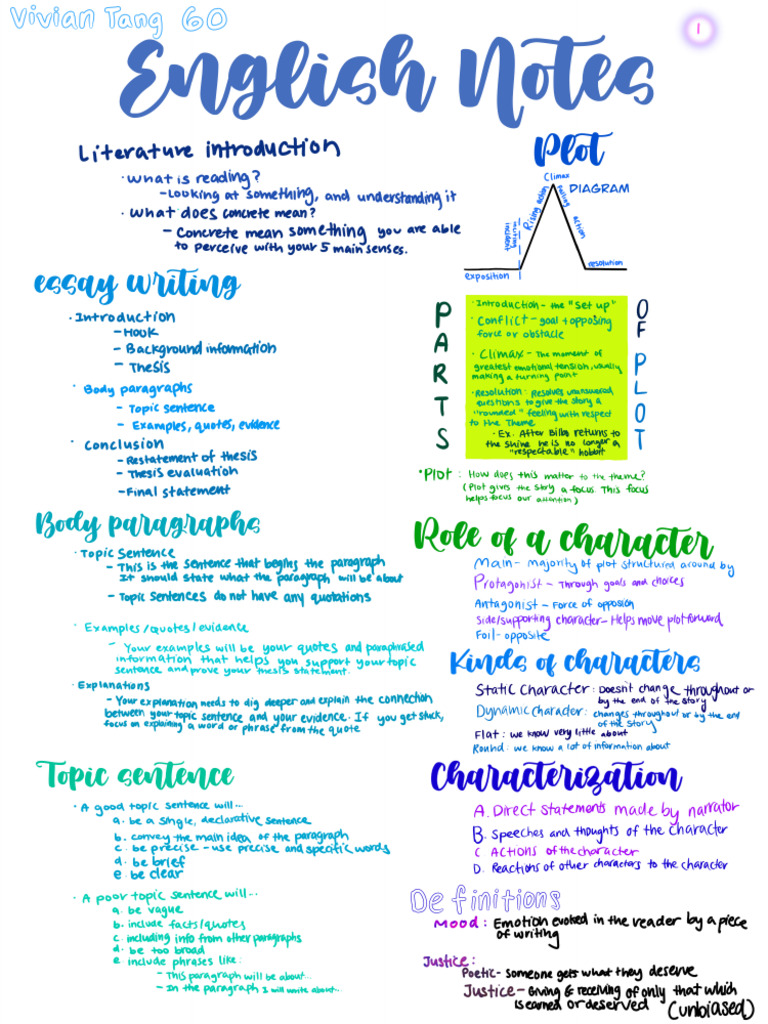 Vivian Tang 60
1
English Notes
Literature introduction
· What is reading?
- Looking at something, and understanding it
· What does concrete mean?
- Concrete mean something you are able
to perceive with your 5 main senses.
essay writing
· Introduction
- Hook
- Background information
- Thesis
· Body paragraphs
- Topic sentence
- Examples, quotes, evidence
· Conclusion
- Restatement of thesis
- Thesis evaluation
- Final statement
Body paragraphs
· Topic Sentence
- This is the sentence that begins the paragraph
It should state what the paragraph will be about
- Topic Sentences do not have any quotations
· Examples/quotes/evidence
- Your examples will be your quotes and paraphrased
information that helps you support your topic
sentence and prove your thesis statement.
· Explanations
- Your explanation needs to dig deeper and explain the connection
between your topic sentence and your evidence. If you get stuck,
focus on explaining a word or phrase from the quote
Topic sentence
· A good topic sentence will...
a. be a single, declarative sentence
b. convey the main idea of the paragraph
c. be precise - use precise and specific words
d. be brief
e. be clear
· A poor topic sentence will...
a. be vague
b. include facts/quotes
c. including info from other paragraphs
d. be too broad
e. include phrases like:
- This paragraph will be about...
- In the paragraph I will write about...
Plot
DIAGRAM
Climax
Rising action
Falling action
inciting incident
exposition
resolution
PARTS
OF PLOT
· Introduction - the "Set up"
· Conflict - goal + opposing
force or obstacle
· Climax - The moment of
greatest emotional tension, usually
making a turning point
· Resolution: Resolves unanswered
questions to give the story a
"rounded" feeling with respect
to the Theme
· Ex. After Bilbo returns to
the shire he is no longer a
"respectable" hobbit
· Plot : How does this matter to the theme?
(Plot gives the story a focus. This focus
helps focus our attention)
Role of a character
Main - majority of plot structured around by
Protagonist - Through goals and choices
Antagonist - Force of opposion
Side/supporting character - Helps move plot forward
Foil - opposite
Kinds of characters
Static Character : Doesn't change throughout or
by the end of the story
Dynamic character : changes throughout or by the end
of the story
Flat : we know very little about
Round : we know a lot of information about
Characterization
A. Direct statements made by narrator
B. Speeches and thoughts of the character
C Actions of the character
D. Reactions of other characters to the character
Definitions
Mood : Emotion evoked in the reader by a piece
of writing
Justice :
Poetic - someone gets what they deserve
Justice - Giving & receiving of only that which
is earned or deserved (unbiased)